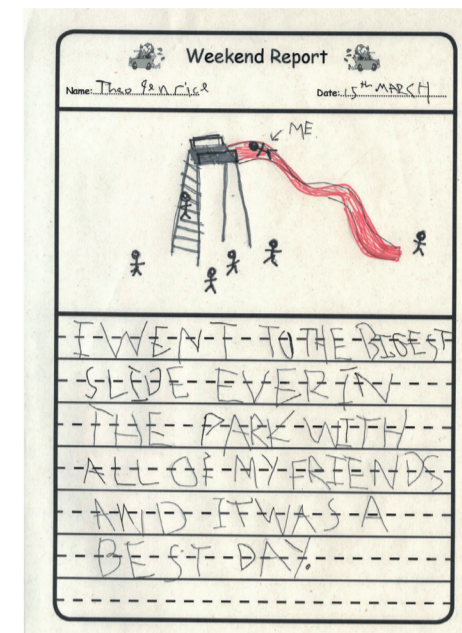 Weekend Report
Name: Theo Date: 15th MARCH
ME
I WENT TO THE BIGEST
SLIDE EVER IN
THE PARK WITH
ALL OF MY FRIENDS
AND IT WAS A
BEST DAY.